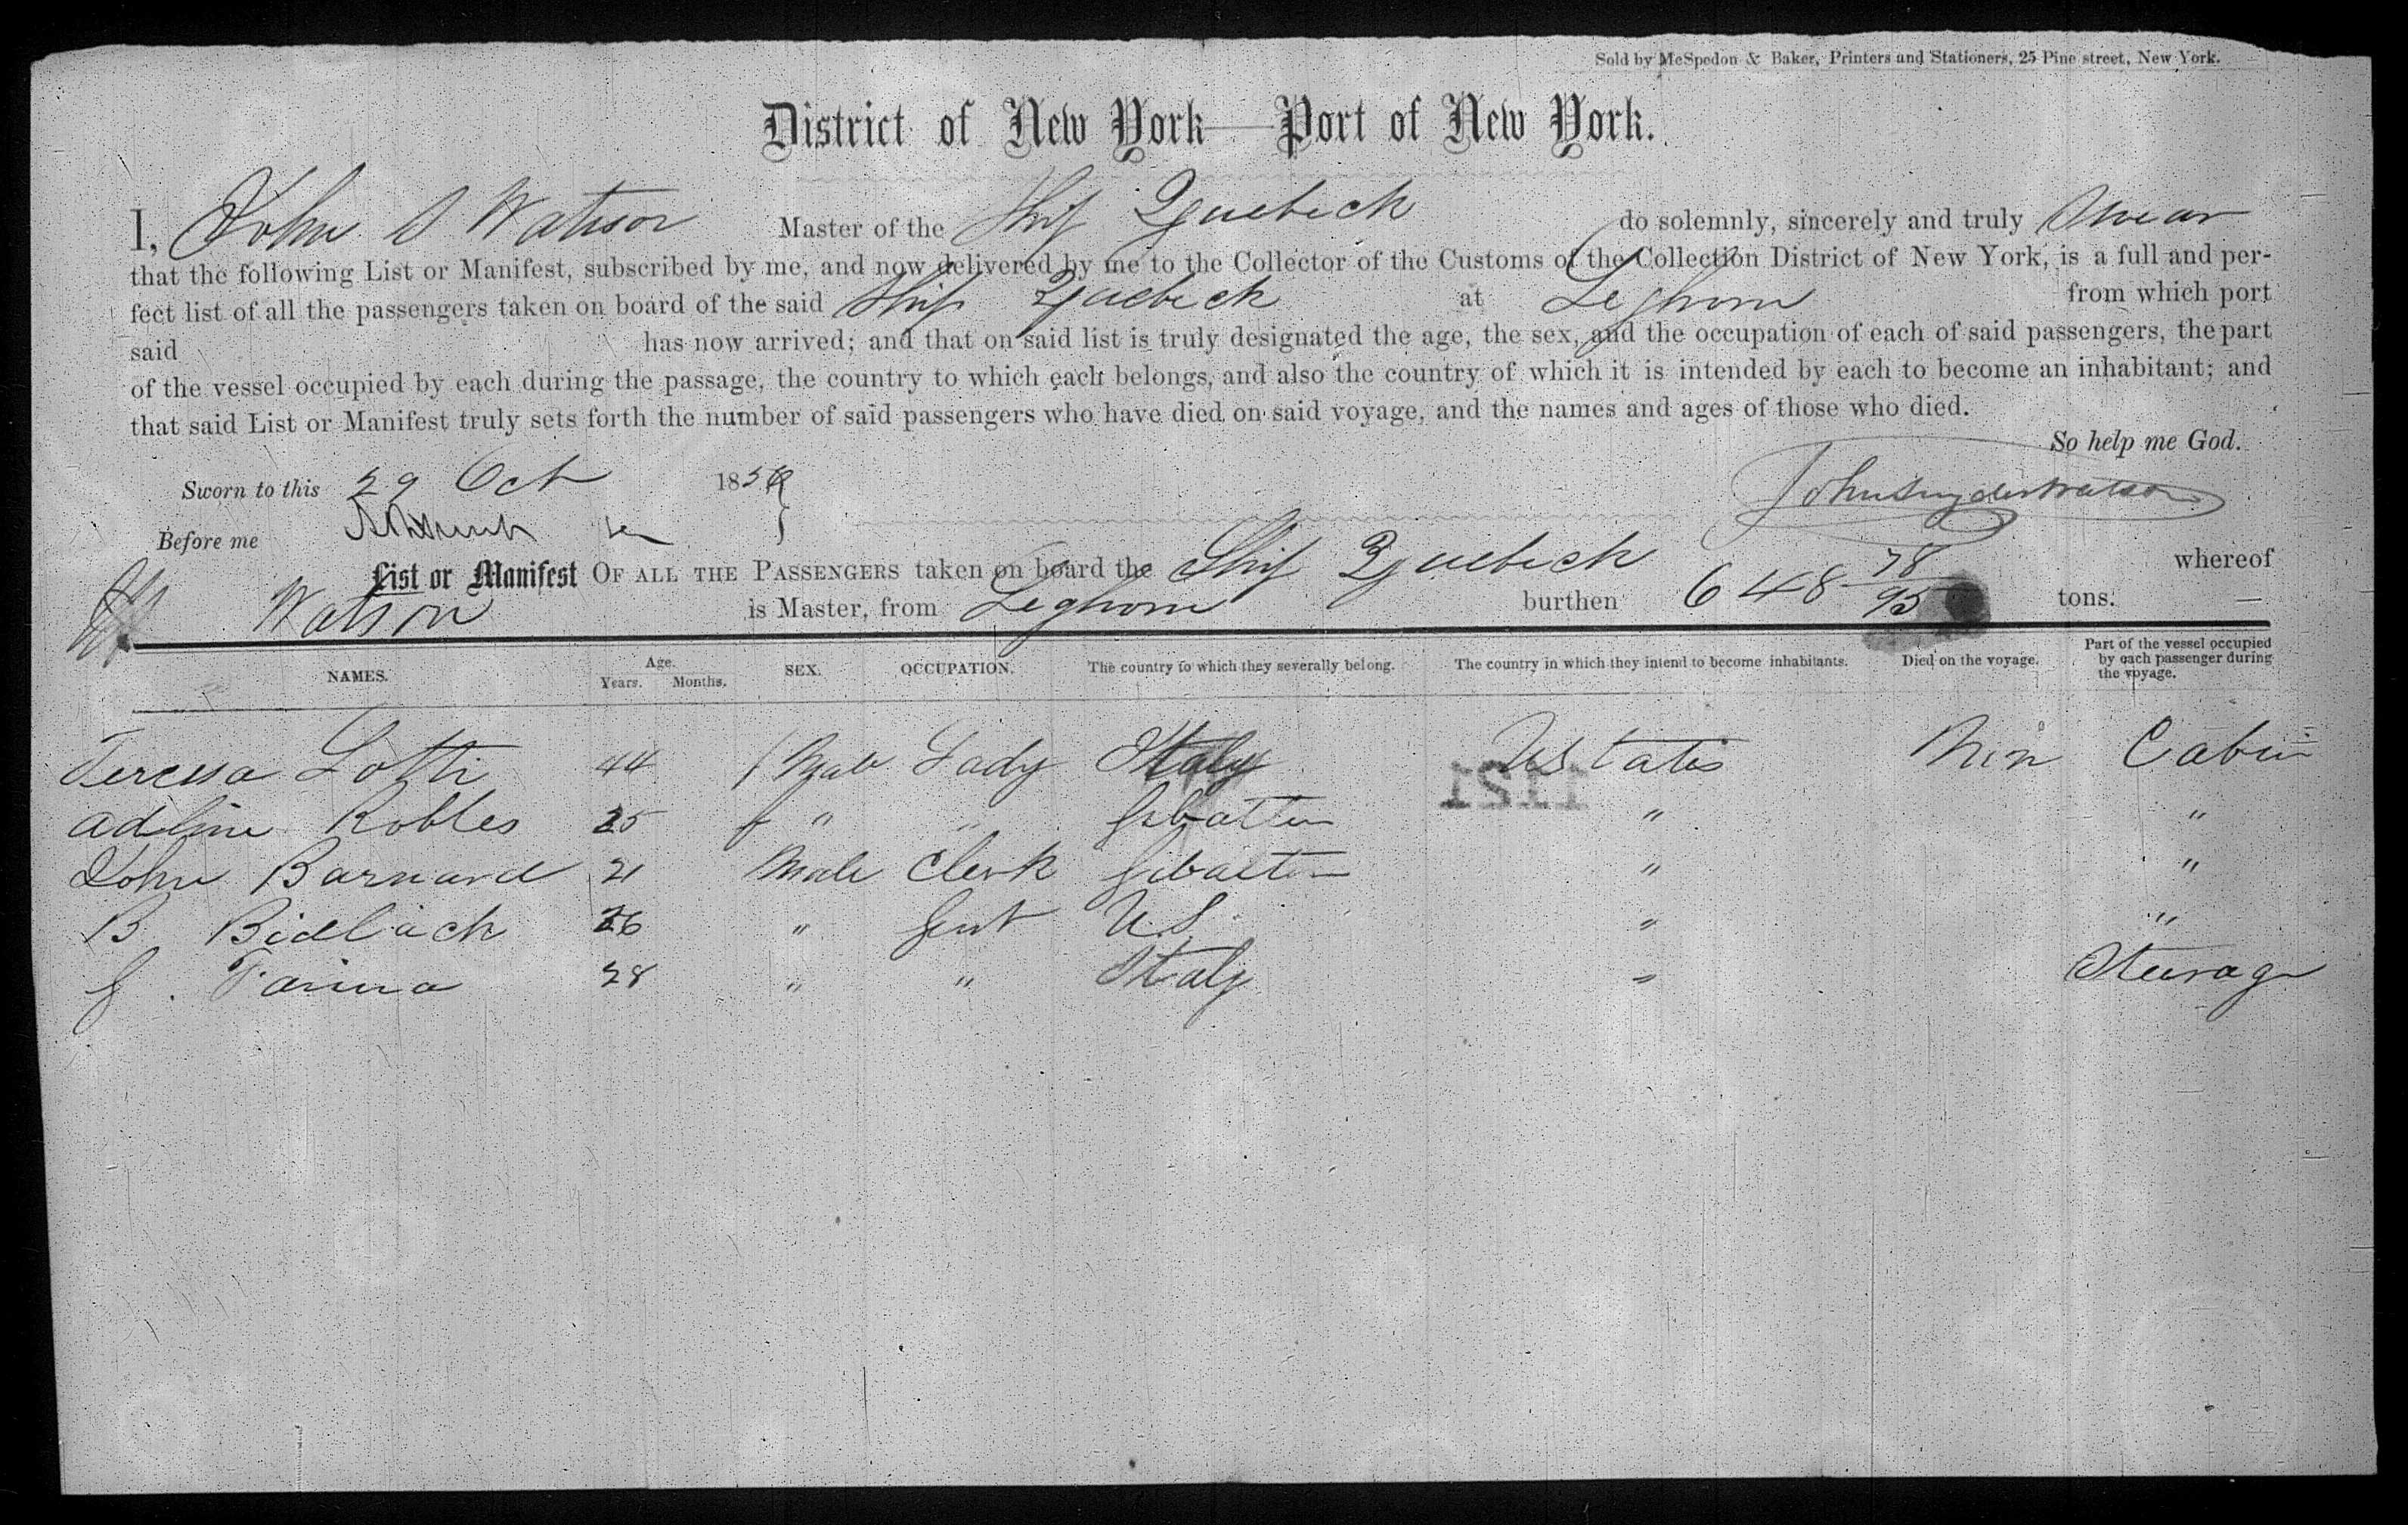 Sold by McSpedon & Baker, Printers and Stationers, 25 Pine street, New York.
District of New York—Port of New York.
I, John S Watson Master of the Ship Quebeck do solemnly, sincerely and truly Swear
that the following List or Manifest, subscribed by me, and now delivered by me to the Collector of the Customs of the Collection District of New York, is a full and per-
fect list of all the passengers taken on board of the said Ship Quebeck at Leghorn from which port
said has now arrived; and that on said list is truly designated the age, the sex, and the occupation of each of said passengers, the part
of the vessel occupied by each during the passage, the country to which each belongs, and also the country of which it is intended by each to become an inhabitant; and
that said List or Manifest truly sets forth the number of said passengers who have died on said voyage, and the names and ages of those who died.
So help me God.
Sworn to this 29 Oct 1856
John Snyder Watson
Before me
List or Manifest OF ALL THE PASSENGERS taken on board the Ship Quebeck whereof
Watson is Master, from Leghorn burthen 648 78/95 tons.
NAMES. Age. Years. Months. SEX. OCCUPATION. The country to which they severally belong. The country in which they intend to become inhabitants. Died on the voyage. Part of the vessel occupied by each passenger during the voyage.
Teressa Lotti 44 Lady Italy U States Cabin
1211
Adline Robles 25 f " " "  "
John Barnard 21 Male Clerk " "
B Bidlack 26 " Gent U.S. " "
G. Farina 28 " " Italy " Steerage